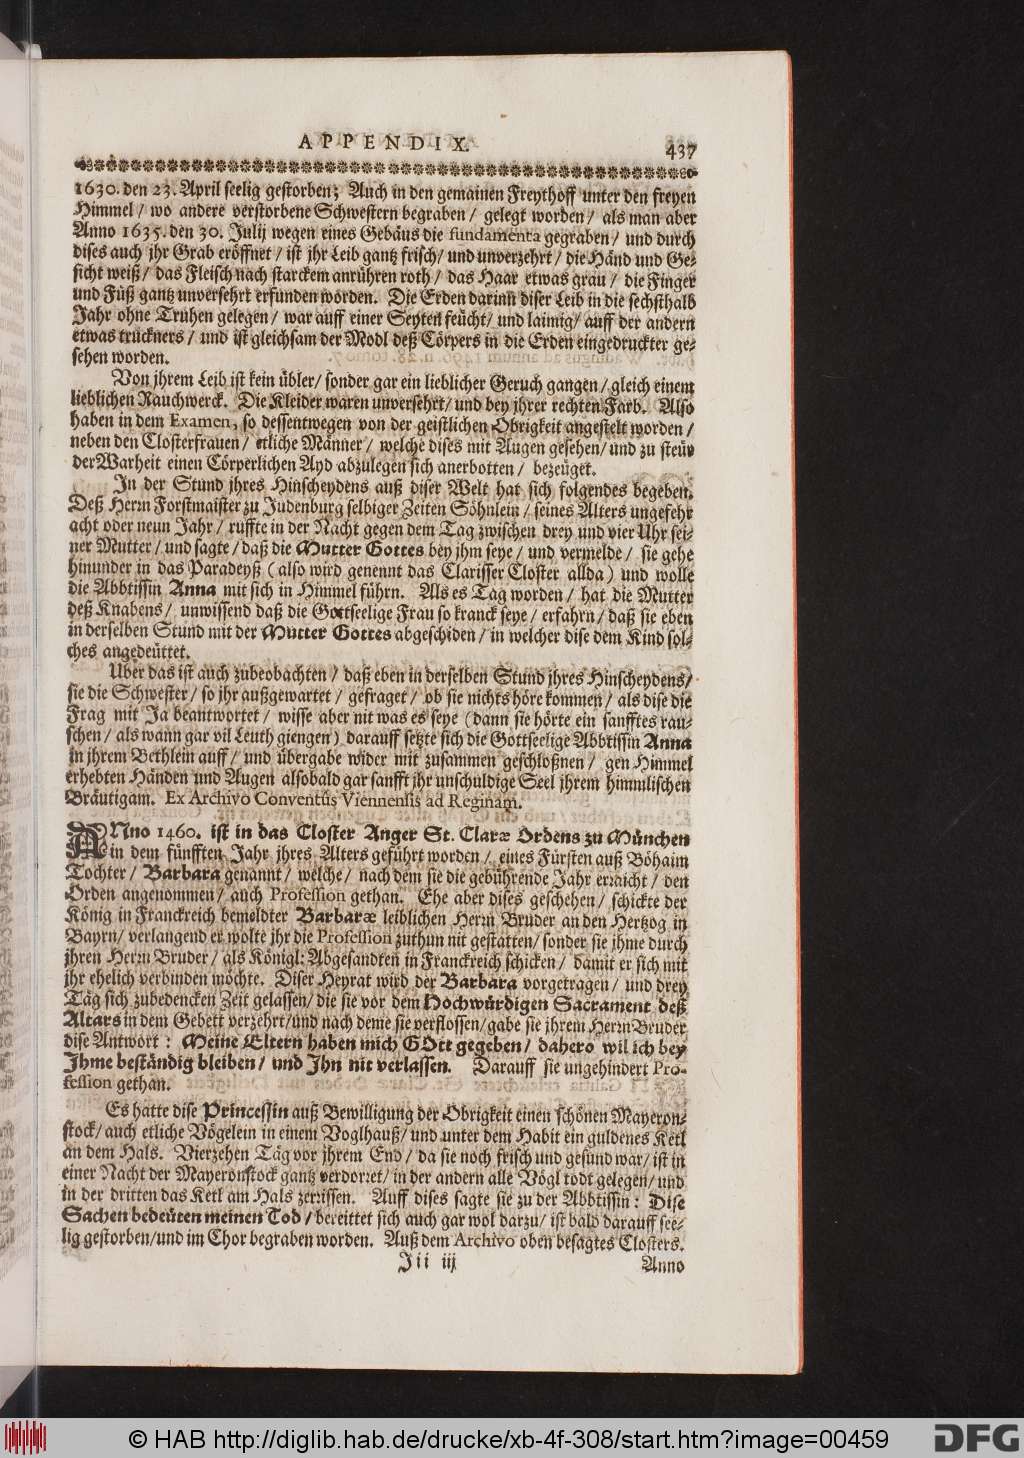 APPENDIX.
437
1630. den 23. April seelig gestorben; Auch in den gemainen Freythoff unter den freyen
Himmel / wo andere verstorbene Schwestern begraben / gelegt worden / als man aber
Anno 1635. den 30. Julij wegen eines Gebäus die fundamenta gegraben / und durch
dises auch jhr Grab eröffnet / ist jhr Leib gantz frisch / und unverzehrt / die Händ und Ge-
sicht weiß / das Fleisch nach starckem anrühren roth / das Haar etwas grau / die Finger
und Füß gantz unversehrt erfunden worden. Die Erden darinn diser Leib in die sechsthalb
Jahr ohne Truhen gelegen / war auff einer Seyten feücht / und laimig / auff der andern
etwas truckners / und ist gleichsam der Modl deß Cörpers in die Erden eingedruckter ge-
sehen worden.
Von jhrem Leib ist kein übler / sonder gar ein lieblicher Geruch gangen / gleich einem
lieblichen Rauchwerck. Die Kleider waren unversehrt / und bey jhrer rechten Farb. Also
haben in dem Examen, so dessentwegen von der geistlichen Obrigkeit angestelt worden /
neben den Closterfrauen / etliche Männer / welche dises mit Augen gesehen / und zu steür
der Warheit einen Cörperlichen Ayd abzulegen sich anerbotten / bezeüget.
In der Stund jhres Hinscheydens auß diser Welt hat sich folgendes begeben.
Deß Herrn Forstmaister zu Judenburg selbiger Zeiten Söhnlein / seines Alters ungefehr
acht oder neun Jahr / ruffte in der Nacht gegen dem Tag zwischen drey und vier Uhr sei-
ner Mutter / und sagte / daß die Mutter Gottes bey jhm seye / und vermelde / sie gehe
hinunder in das Paradeyß (also wird genennt das Clarisser Closter allda) und wolle
die Abbtissin Anna mit sich in Himmel führn. Als es Tag worden / hat die Mutter
deß Knabens / unwissend daß die Gottseelige Frau so kranck seye / erfahrn / daß sie eben
in derselben Stund mit der Mutter Gottes abgeschiden / in welcher dise dem Kind sol-
ches angedeüttet.
Uber das ist auch zubeobachten / daß eben in derselben Stund jhres Hinscheydens /
sie die Schwester / so jhr außgewartet / gefraget / ob sie nichts höre kommen / als dise die
Frag mit Ja beantwortet / wisse aber nit was es seye (dann sie hörte ein sanfftes rau-
schen / als wann gar vil Leuth giengen) darauff setzte sich die Gottseelige Abbtissin Anna
in jhrem Bethlein auff / und übergabe wider mit zusammen geschloßnen / gen Himmel
erhebten Händen und Augen alsobald gar sanfft jhr unschuldige Seel jhrem himmlischen
Bräutigam. Ex Archivo Conventûs Viennensis ad Reginam.
ANno 1460. ist in das Closter Anger St. Claræ Ordens zu München
in dem fünfften Jahr jhres Alters geführt worden / eines Fürsten auß Böhaim
Tochter / Barbara genannt / welche / nach dem sie die gebührende Jahr erraicht / den
Orden angenommen / auch Profession gethan. Ehe aber dises geschehen / schickte der
König in Franckreich bemeldter Barbaræ leiblichen Herrn Bruder an den Hertzog in
Bayrn / verlangend er wolte jhr die Profession zuthun nit gestatten / sonder sie jhme durch
jhren Herrn Bruder / als Königl: Abgesandten in Franckreich schicken / damit er sich mit
jhr ehelich verbinden möchte. Diser Heyrat wird der Barbara vorgetragen / und drey
Täg sich zubedencken Zeit gelassen / die sie vor dem Hochwürdigen Sacrament deß
Altars in dem Gebett verzehrt / und nach deme sie verflossen / gabe sie jhrem Herrn Bruder
dise Antwort: Meine Eltern haben mich GOtt gegeben / dahero wil ich bey
Jhme beständig bleiben / und Jhn nit verlassen. Darauff sie ungehindert Pro-
fession gethan.
Es hatte dise Princessin auß Bewilligung der Obrigkeit einen schönen Mayeron-
stock / auch etliche Vögelein in einem Voglhauß / und unter dem Habit ein guldenes Ketl
an dem Hals. Vierzehen Täg vor jhrem End / da sie noch frisch und gesund war / ist in
einer Nacht der Mayeronstock gantz verdorret / in der andern alle Vögl todt gelegen / und
in der dritten das Ketl am Hals zerrissen. Auff dises sagte sie zu der Abbtissin: Dise
Sachen bedeüten meinen Tod / bereittet sich auch gar wol darzu / ist bald darauff see-
lig gestorben / und im Chor begraben worden. Auß dem Archivo oben besagtes Closters.
Jii iij
Anno
© HAB http://diglib.hab.de/drucke/xb-4f-308/start.htm?image=00459
DFG